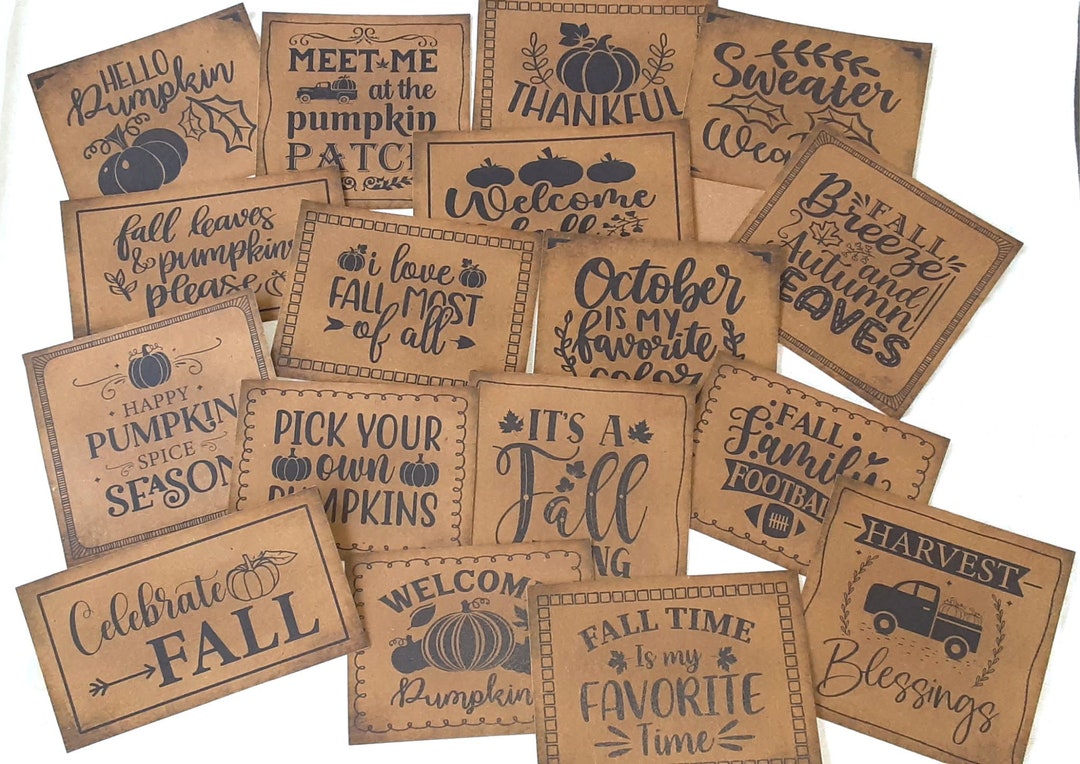 HELLO
Pumpkin
MEET ME
at the
pumpkin
PATCH
THANKFUL
Sweater
fall leaves
& pumpkins
please
Welcome
i love
FALL MOST
of all
October
IS MY
favorite
color
FALL
Breeze
and
Autumn
LEAVES
HAPPY
PUMPKIN
SPICE
SEASON
PICK YOUR
own
PUMPKINS
IT'S A
Fall
FALL
Family
FOOTBALL
HARVEST
Blessings
Celebrate
FALL
WELCOME
Pumpkin
FALL TIME
Is my
FAVORITE
Time